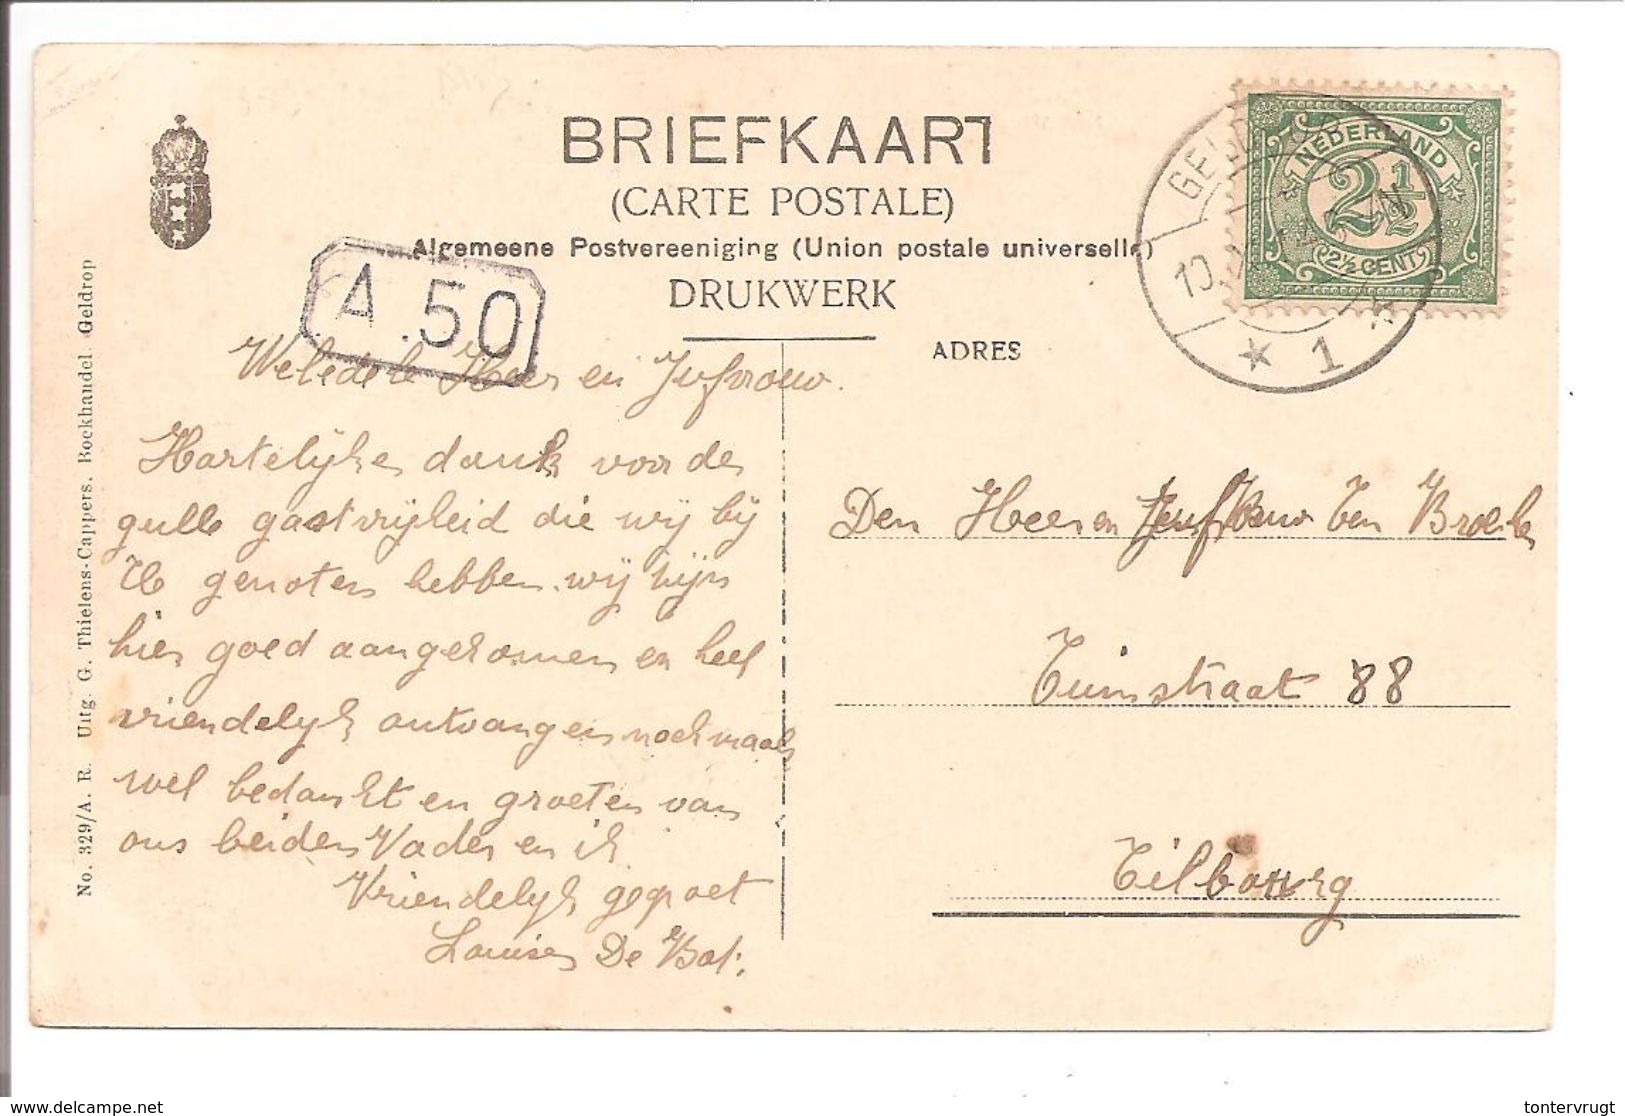 BRIEFKAART
(CARTE POSTALE)
Algemeene Postvereeniging (Union postale universelle)
DRUKWERK
A .50
ADRES
NEDERLAND
2½
2½ CENT
1
Weledele Heer en Jufvrouw.
Hartelijke dank voor de
gulle gastvrijheid die wij bij
U genoten hebben. wij zijn
hier goed aangekomen en heel
vriendelijk ontvangen nochmaals
wel bedankt en groeten van
ons beiden Vader en ik
Vriendelijk gegroet
Louise De Bat.
Den Heer en Jufvrouw Ten Broeke
Tuinstraat 88
Tilbourg
No. 329/A. R. Uitg. G. Thielens-Cappers, Boekhandel. Geldrop
delcampe.net
tontervrugt